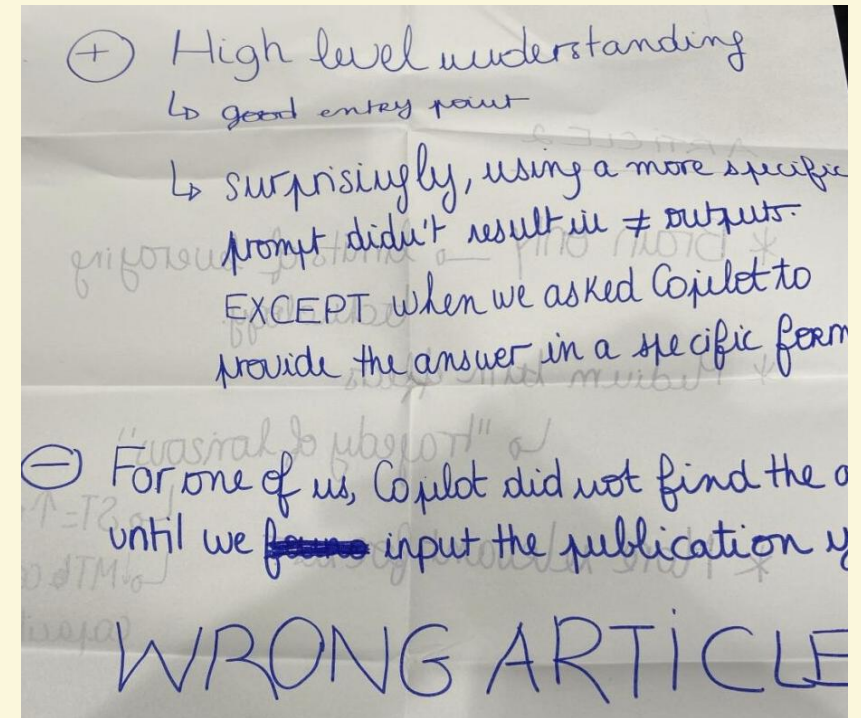 + High level understanding
↳ good entry point
↳ surprisingly, using a more specific
prompt didn't result in ≠ outputs.
EXCEPT when we asked Copilot to
provide the answer in a specific form
- For one of us, Copilot did not find the a
until we input the publication y
WRONG ARTICLE